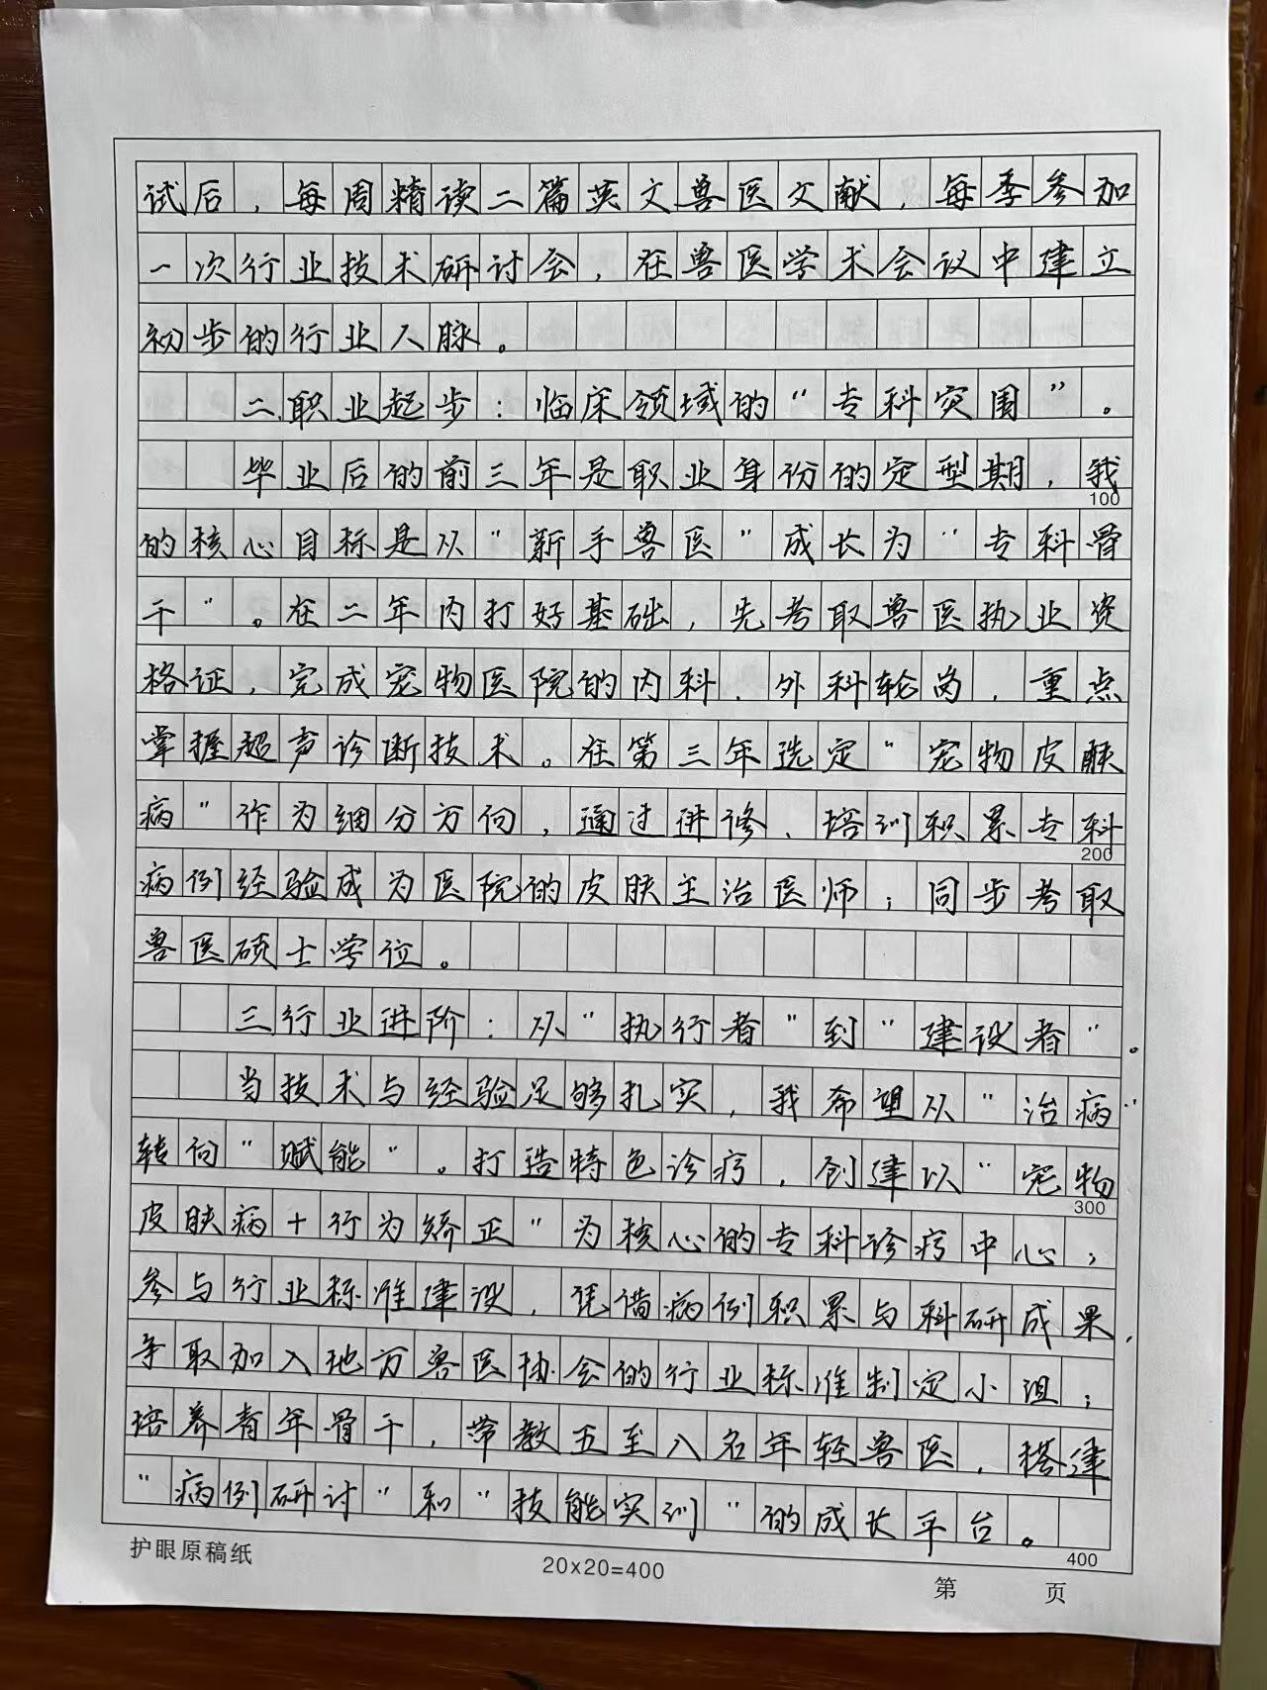 试后，每周精读二篇英文兽医文献，每季参加
一次行业技术研讨会，在兽医学术会议中建立
初步的行业人脉。
二、职业起步：临床领域的“专科突围”。
毕业后的前三年是职业身份的定型期，我
100
的核心目标是从“新手兽医”成长为“专科骨
干”。在二年内打好基础，先考取兽医执业资
格证，完成宠物医院的内科、外科轮岗，重点
掌握超声诊断技术。在第三年选定“宠物皮肤
病”作为细分方向，通过进修、培训积累专科
200
病例经验成为医院的皮肤主治医师；同步考取
兽医硕士学位。
三行业进阶：从“执行者”到“建设者”。
当技术与经验足够扎实，我希望从“治病”
转向“赋能”。打造特色诊疗，创建以“宠物
300
皮肤病+行为矫正”为核心的专科诊疗中心；
参与行业标准建设，凭借病例积累与科研成果，
争取加入地方兽医协会的行业标准制定小组；
培养青年骨干，带教五至八名年轻兽医，搭建
“病例研讨”和“技能实训”的成长平台。
400
护眼原稿纸
20x20=400
第 页